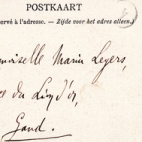 POSTKAART
servé à l'adresse. — Zijde voor het adres alleen.)
moiselle Marie Leyers,
du Lion d'or,
Gand.